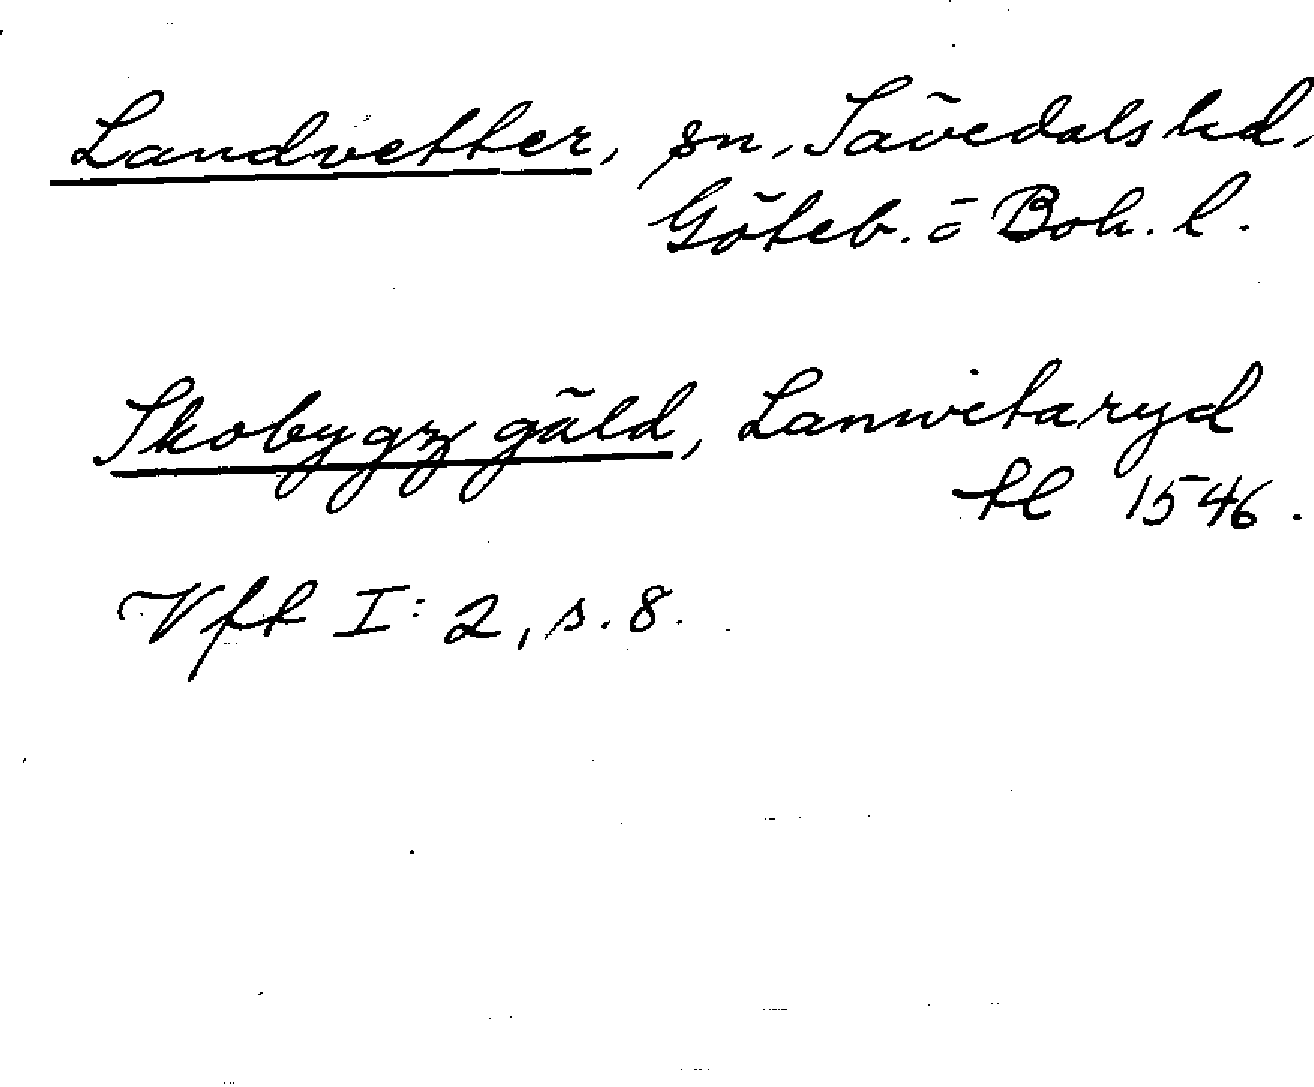 Landvetter, sn, Sävedals hd,
Göteb. o Boh. l.
Skobygz gäld, Lanwetaryd
tl 1546.
Vfl I: 2, s. 8.